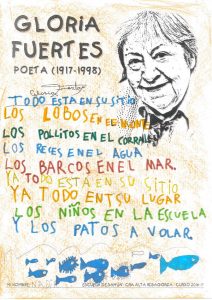 GLORIA
FUERTES
POETA (1917-1998)
TODO ESTA EN SU SITIO
LOS LOBOS EN EL MONTE
LOS POLLITOS EN EL CORRAL
LOS PECES EN EL AGUA
LOS BARCOS EN EL MAR.
YA TODO ESTA EN SU SITIO
YA TODO EN SU LUGAR
LOS NIÑOS EN LA ESCUELA
Y LOS PATOS A VOLAR.
MI NOMBRE: